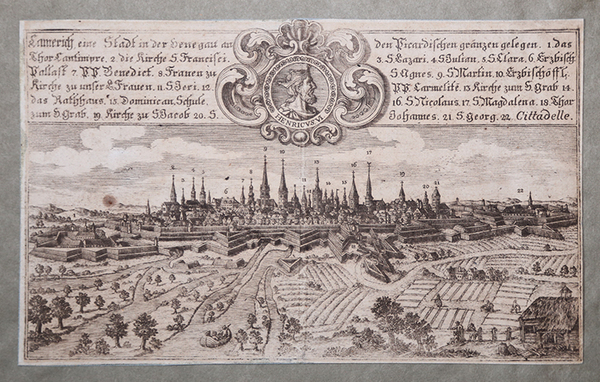 Camerich eine Stadt in der Venegau an den Picardischen gränzen gelegen. 1. das
Thor Cantimpre. 2 die Kirche S. Francisci. 3. S. Lazari. 4. S Julian. 5. S. Clara. 6. Erzbisch
Pallast 7. PP. Benedict. 8. Frauen zu S Agnes. 9. S. Martin. 10. Erzbischöffl.
Kirche zu unser L. Frauen. 11. S. Jeri. 12 PP. Carmelite. 13 Kirche zum H. Grab 14.
das Rathhaus. 15. Dominican. Schule. 16. S. Nicolaus. 17. S Magdalena. 18. Thor
zum H. Grab. 19 Kirche zu S Jacob 20. S. Johannes. 21 S. Georg. 22. Cittadelle.
HENRICVS VI